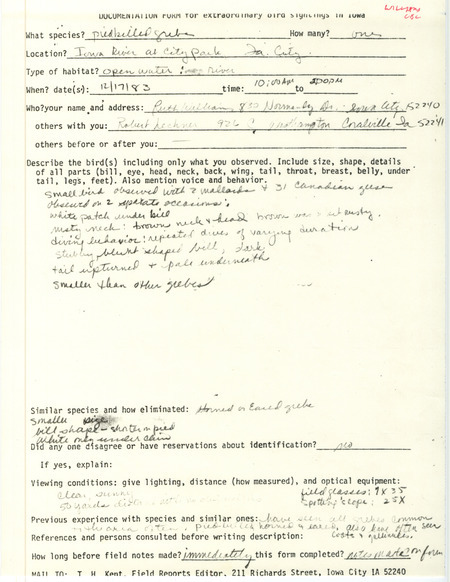 DOCUMENTATION FORM for extraordinary bird sightings in Iowa
What species? piedbilled grebe How many? one
Location? Iowa River at City Park Ia. City
Type of habitat? open water river
When? date(s): 12/17/83 time: 10:00 AM to 2:00 PM
Who? your name and address: Normandy Dr. Iowa City 52240
others with you: Robert Coralville Ia 52241
others before or after you:
Describe the bird(s) including only what you observed. Include size, shape, details
of all parts (bill, eye, head, neck, back, wing, tail, throat, breast, belly, under
tail, legs, feet). Also mention voice and behavior.
Small bird observed with 2 mallards & 31 Canadian geese
observed on 2 separate occasions;
white patch under bill
rusty neck: brown neck & head brown
diving behavior: repeated dives of varying duration
stubby, blunt shaped bill, dark
tail upturned & pale underneath
smaller than other grebes
Similar species and how eliminated: Horned or Eared grebe
smaller size
bill shape - shorter in pied
white only under chin
Did any one disagree or have reservations about identification? no
If yes, explain:
Viewing conditions: give lighting, distance (how measured), and optical equipment:
clear, sunny field glasses: 7 X 35
spotting scope: 25X
Previous experience with species and similar ones: have seen all grebes common
in often. piedbilled, horned & eared also have often seen
References and persons consulted before writing description: coots & gallinules.
How long before field notes made? immediately this form completed? notes made on form
MAIL TO: T. H. Kent, Field Reports Editor, 211 Richards Street, Iowa City IA 52240